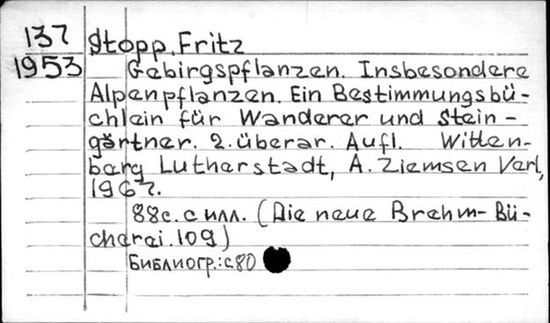 137
1953
Stopp, Fritz
Gebirgspflanzen. Insbesondere
Alpenpflanzen. Ein Bestimmungsbü-
chlein für Wanderer und Stein-
gärtner. 2. überar. Aufl. Witten-
berg Lutherstadt, A. Ziemsen Verl,
1967.
88с. с илл. (Die neue Brehm-Bü-
cherei. 109)
Библиогр.: с.80